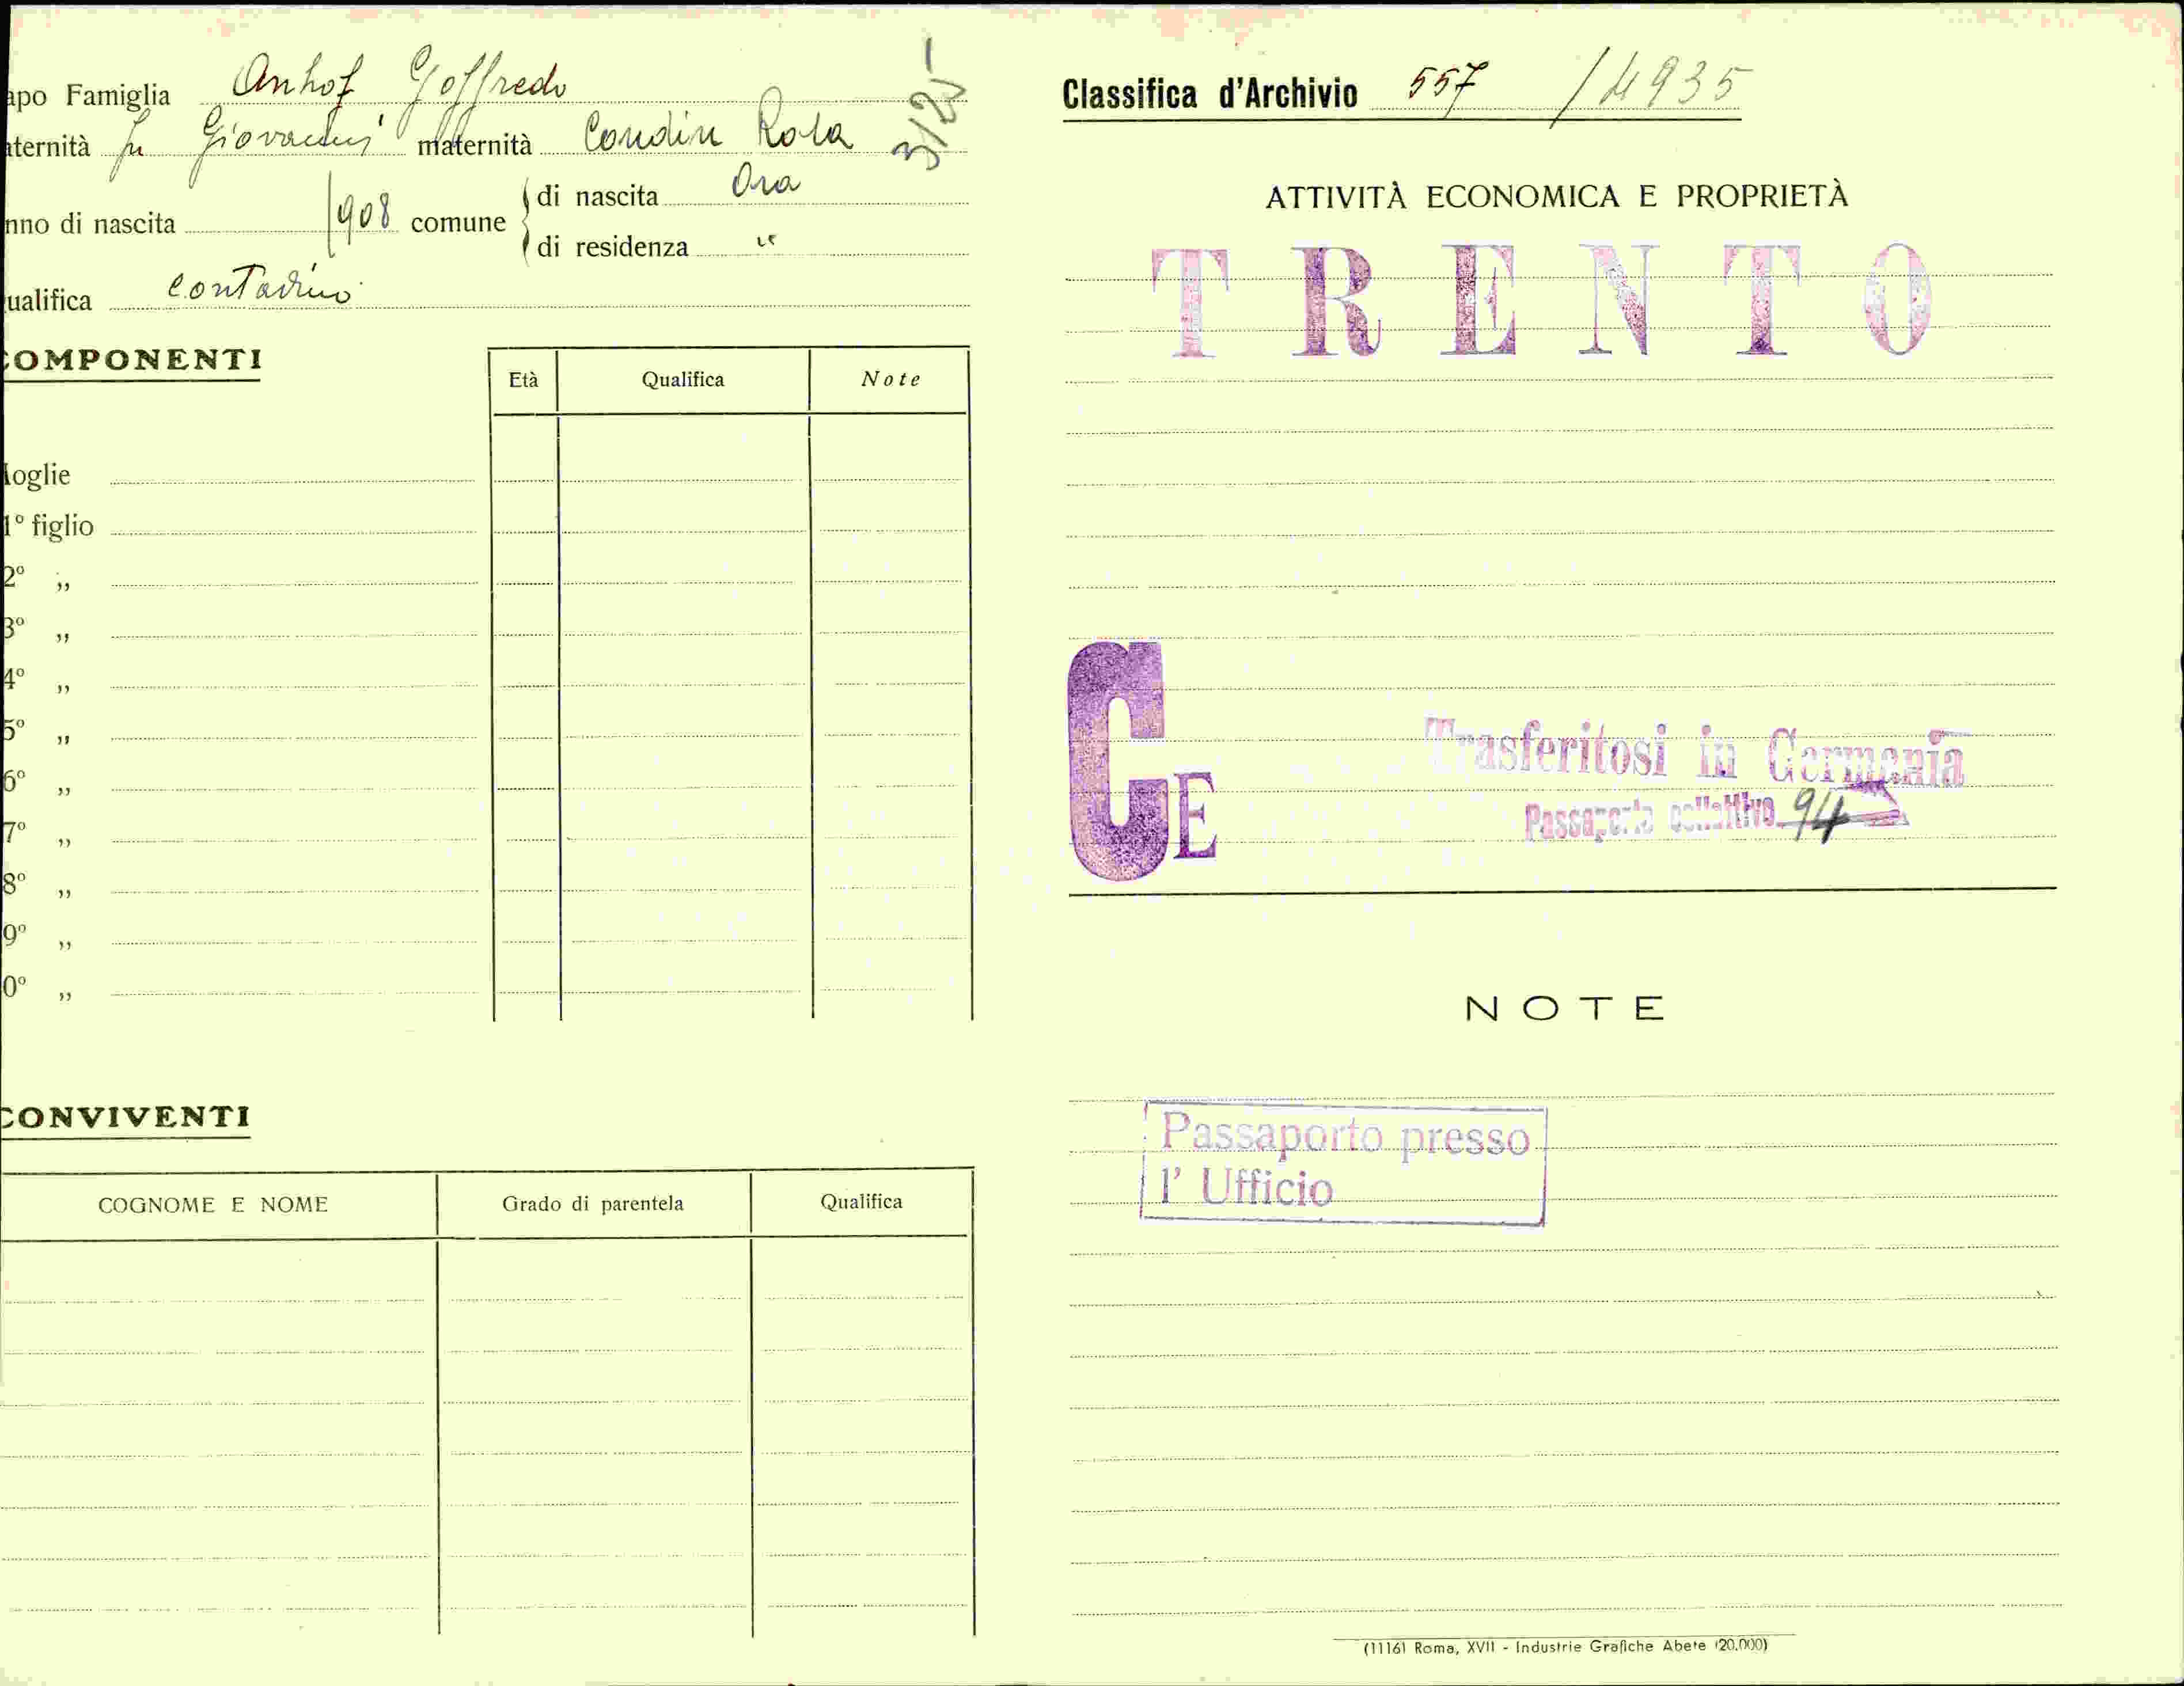 apo Famiglia Anhof Goffredo
aternità fu Giovanni maternità Condin Rosa
nno di nascita 1908 comune di nascita Ora
di residenza "
ualifica contadino
COMPONENTI
Età Qualifica Note
oglie
1º figlio
2º "
3º "
4º "
5º "
6º "
7º "
8º "
9º "
0º "
CONVIVENTI
COGNOME E NOME Grado di parentela Qualifica
Classifica d'Archivio 557 / 4935
ATTIVITÀ ECONOMICA E PROPRIETÀ
TRENTO
CE
Trasferitosi in Germania
Passaporto collettivo 94
NOTE
Passaporto presso
l' Ufficio
(1116) Roma, XVII - Industrie Grafiche Abete (20.000)